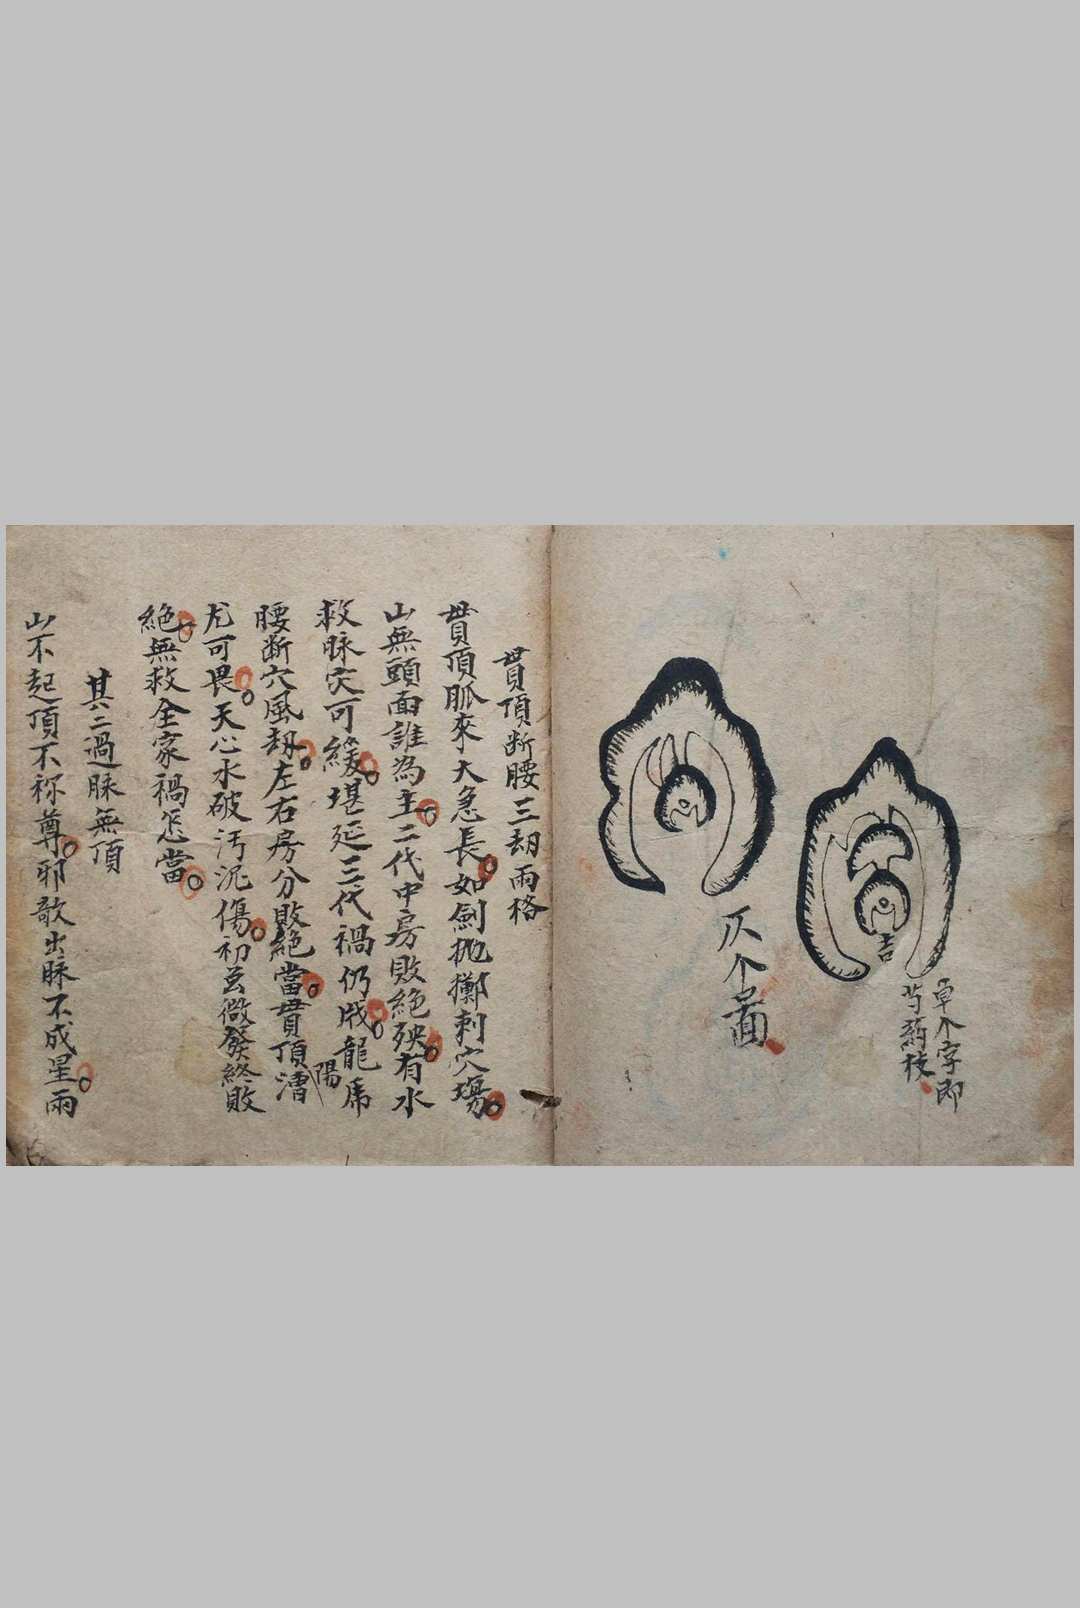 卓个字即
芍药枝
吉
仄个圖
貫頂断腰三刼兩格
貫頂脈來大急長如劍抛擲刺穴塲
山無頭面誰為主二代中房敗絕殃有水
救脉灾可緩堪延三代禍仍戕龍虎
陽
腰断穴風刼左右房分敗絕當貫頂漕
尤可畏天心水破汚泥傷初玄微發終敗
絕無救全家禍怎當
其二過脉無頂
山不起頂不称尊邪欹出脉不成星兩